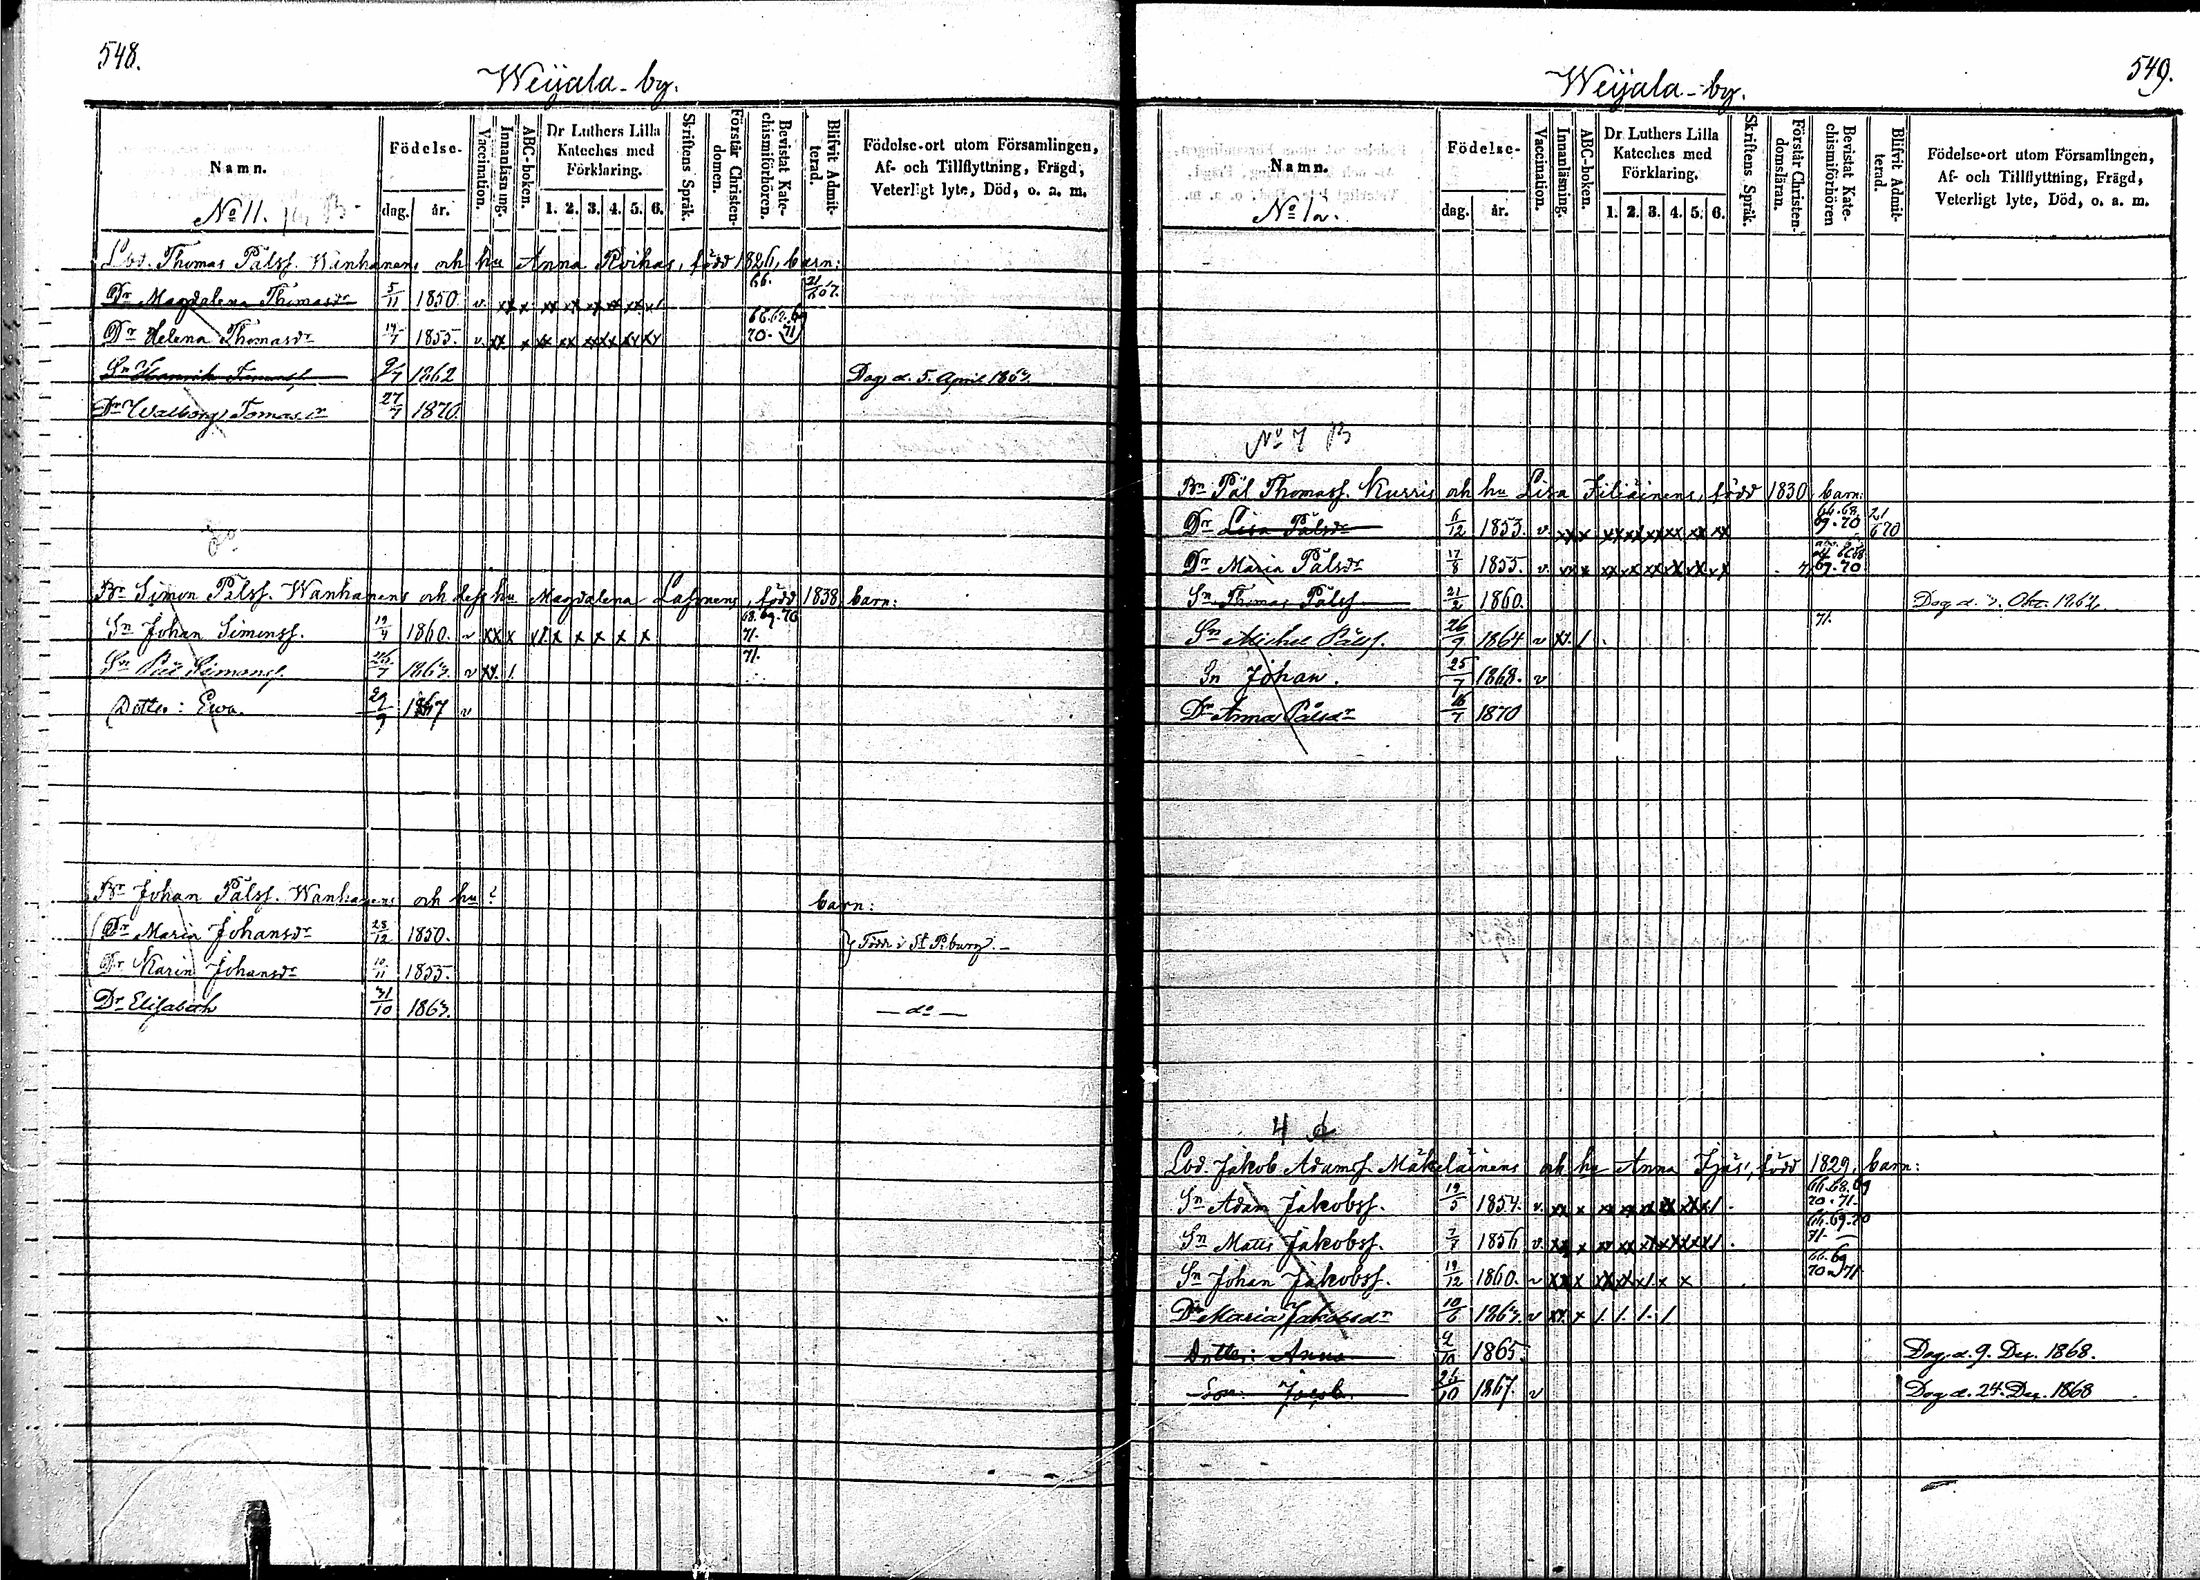 548.
Weijala-by.
Namn.
Födelse-
dag. år.
Vaccination.
Innanläsning.
ABC-boken.
Dr Luthers Lilla Kateches med Förklaring.
1. 2. 3. 4. 5. 6.
Skriftens Språk.
Förstår Christen-domen.
Bevistat Kate-chismiförhören.
Blifvit Admit-terad.
Födelse-ort utom Församlingen, Af- och Tillflyttning, Frägd, Veterligt lyte, Död, o. a. m.
No 11.
Lod. Thomas Pålss. Wanhanens och hu Anna Roihas, född 1826, barn:
Dr Magdalena Thomasdr 5/11 1850. v. 66.
Dr Helena Thomasdr 1855. v. 70. 71
Sn Henrik 1862 Dog d. 5. April 1863.
Dr Walborg Tomasdr 27/7 1870.
Br Simon Pålss. Wanhanens och dess hu Magdalena Lasonens, född 1838 barn:
Sn Johan Simonss. 19/4 1860. v 68. 69. 70 71.
Sn Pål Simonss. 1863. v 71.
Dotter: Ewa. 29/9 1867 v
Br Johan Pålss. Wanhanens och hu ? barn:
Dr Maria Johansdr 28/12 1850. Född i St. P.burg. —
Dr Karin Johansdr 10/11 1855.
Dr Elisabeth 31/10 1863. — do —
549.
Weijala-by.
Namn.
Födelse-
dag. år.
Vaccination.
Innanläsning.
ABC-boken.
Dr Luthers Lilla Kateches med Förklaring.
1. 2. 3. 4. 5. 6.
Skriftens Språk.
Förstår Christen-domsläran.
Bevistat Kate-chismiförhören
Blifvit Admit-terad.
Födelse-ort utom Församlingen, Af- och Tillflyttning, Frägd, Veterligt lyte, Död, o. a. m.
No 1a.
No 7 B
Bn Pål Thomass. Kurris och hu Lisa Filiäinens, född 1830, barn:
Dr Lisa Pålsdr 6/12 1853. v. 66. 68. 69. 70 21/6 70
Dr Maria Pålsdr 17/8 1855. v. 69. 70.
Sn Thomas Pålss 21/2 1860.
Sn Michel Pålss. 26/9 1864 v 71.
Sn Johan. 25/7 1868. v
Dr Anna Pålsdr 16/7 1870
4
Lod. Jakob Adamss. Mäkeläinens och hu Anna Ijäs, född 1829, barn:
Sn Adam Jakobss. 19/5 1854. v. 66. 68. 69 70. 71.
Sn Matts Jakobss. 7/7 1856 v. 66. 69. 70 71.
Sn Johan Jakobss. 19/12 1860. v 66. 69 70 71
Dr Maria Jakobsdr 10/6 1863. v
Dotter: Anna 2/10 1865. Dog d. 9. Dec. 1868.
Son: Jacob. 26/10 1867. v Dog d. 24. Dec. 1868